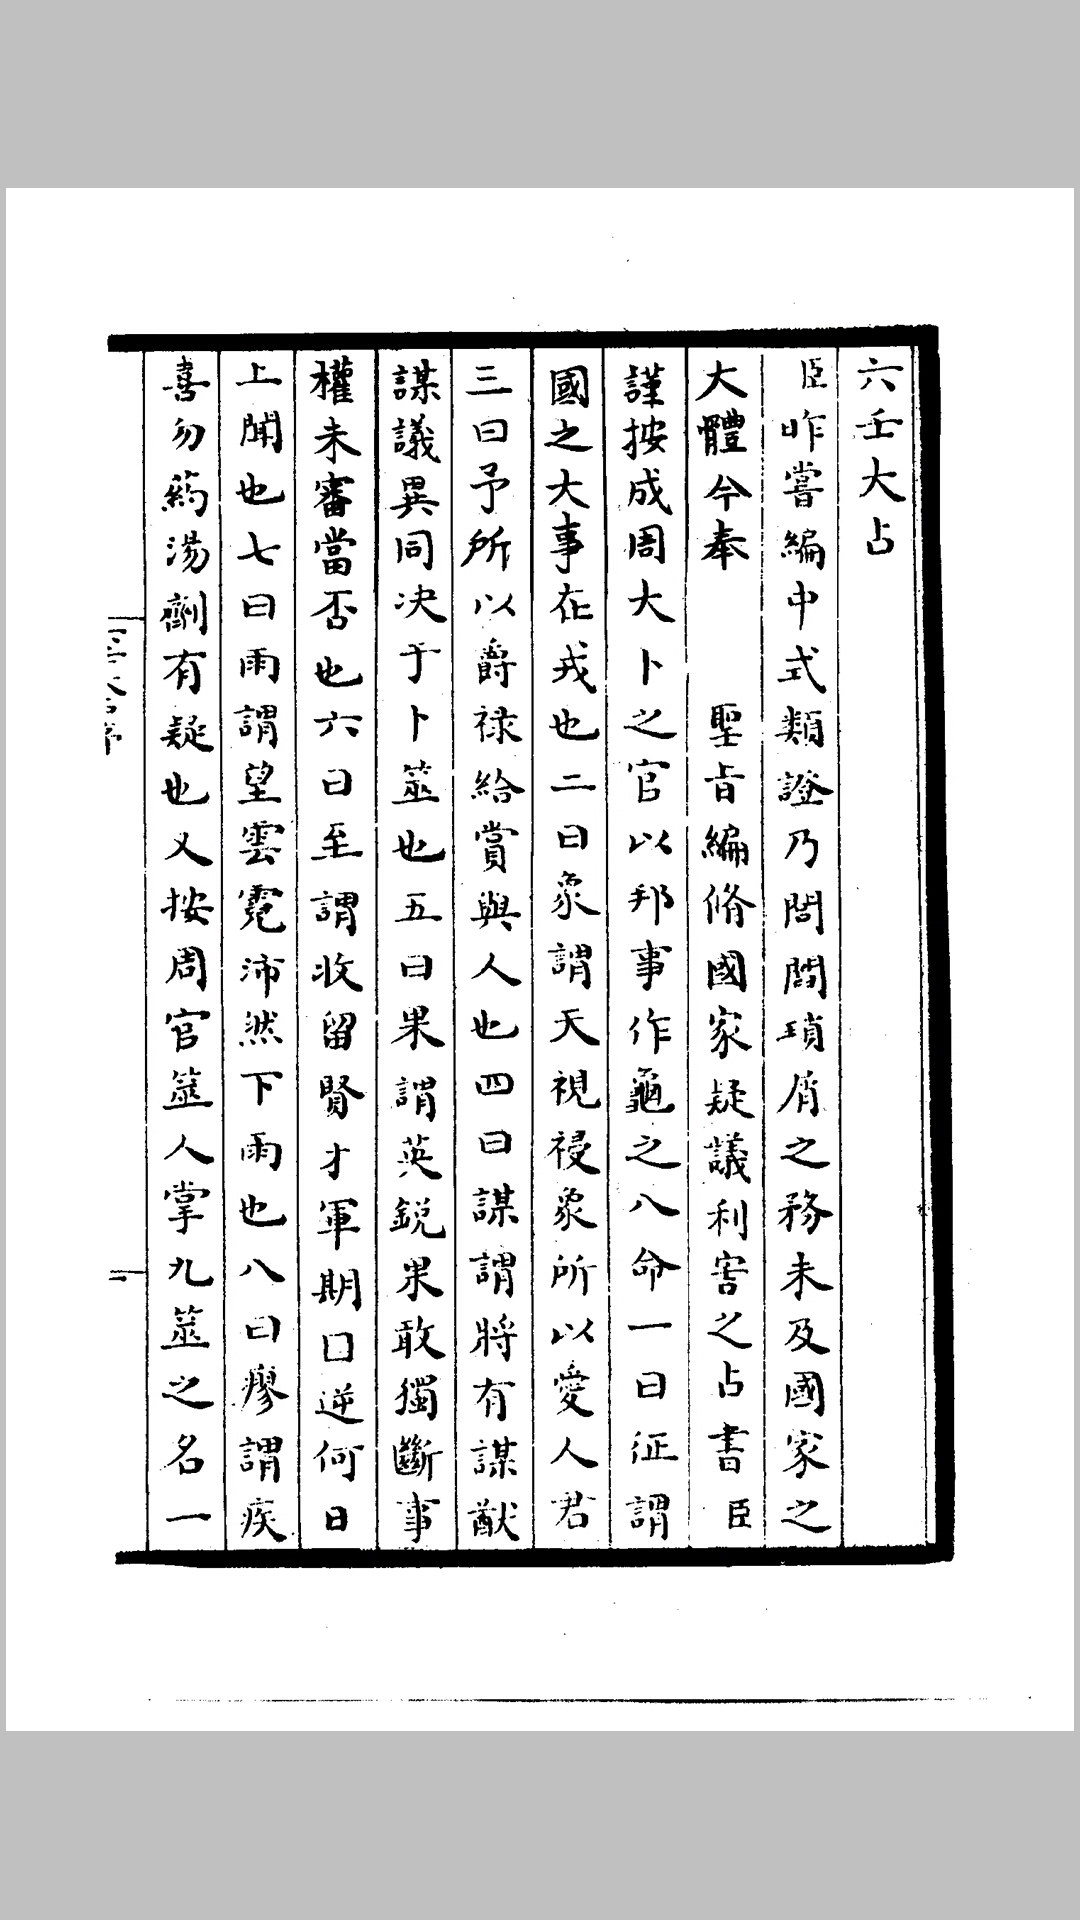 六壬大占
臣昨嘗編中式類證乃閭閻瑣屑之務未及國家之
大體今奉 聖旨編脩國家疑議利害之占書臣
謹按成周大卜之官以邦事作龜之八命一曰征謂
國之大事在戎也二曰象謂天視祲象所以愛人君
三曰予所以爵禄給賞與人也四曰謀謂將有謀猷
謀議異同决于卜筮也五曰果謂英銳果敢獨斷事
權未審當否也六曰至謂收留賢才軍期口逆何日
上聞也七曰雨謂望雲霓沛然下雨也八曰瘳謂疾
喜勿藥湯劑有疑也又按周官筮人掌九筮之名一